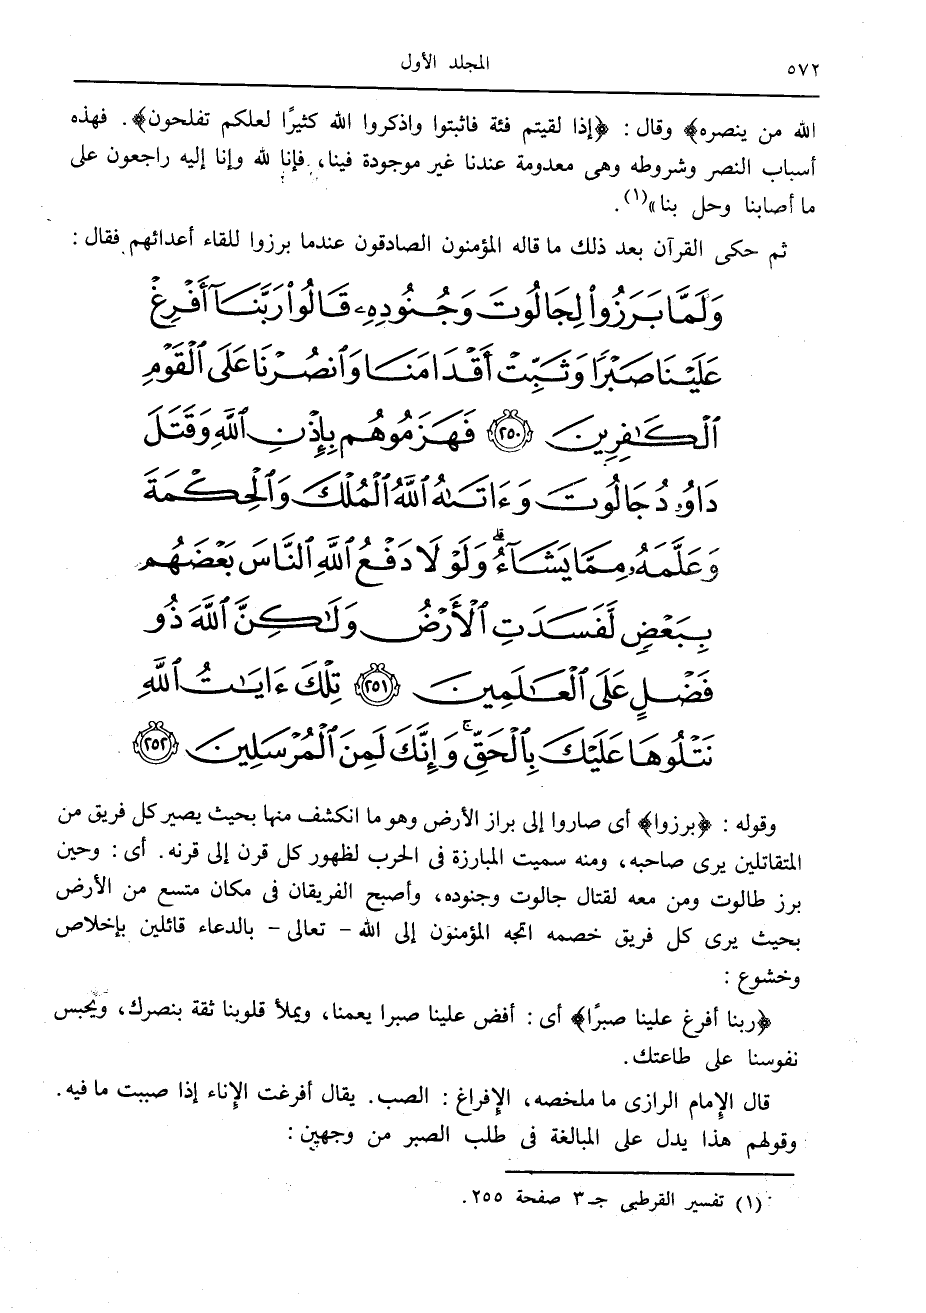 ٥٧٢ المجلد الأول
الله من ينصره﴾ وقال : ﴿إذا لقيتم فئة فاثبتوا واذكروا الله كثيرًا لعلكم تفلحون﴾. فهذه
أسباب النصر وشروطه وهى معدومة عندنا غير موجودة فينا، فإنا لله وإنا إليه راجعون على
ما أصابنا وحل بنا»(١).
ثم حكى القرآن بعد ذلك ما قاله المؤمنون الصادقون عندما برزوا للقاء أعدائهم فقال :
وَلَمَّا بَرَزُوا۟ لِجَالُوتَ وَجُنُودِهِۦ قَالُوا۟ رَبَّنَآ أَفْرِغْ
عَلَيْنَا صَبْرًا وَثَبِّتْ أَقْدَامَنَا وَٱنصُرْنَا عَلَى ٱلْقَوْمِ
ٱلْكَٰفِرِينَ ۝٢٥٠ فَهَزَمُوهُم بِإِذْنِ ٱللَّهِ وَقَتَلَ
دَاوُۥدُ جَالُوتَ وَءَاتَىٰهُ ٱللَّهُ ٱلْمُلْكَ وَٱلْحِكْمَةَ
وَعَلَّمَهُۥ مِمَّا يَشَآءُ ۗ وَلَوْلَا دَفْعُ ٱللَّهِ ٱلنَّاسَ بَعْضَهُم
بِبَعْضٍ لَّفَسَدَتِ ٱلْأَرْضُ وَلَٰكِنَّ ٱللَّهَ ذُو
فَضْلٍ عَلَى ٱلْعَٰلَمِينَ ۝٢٥١ تِلْكَ ءَايَٰتُ ٱللَّهِ
نَتْلُوهَا عَلَيْكَ بِٱلْحَقِّ ۚ وَإِنَّكَ لَمِنَ ٱلْمُرْسَلِينَ ۝٢٥٢
وقوله : ﴿برزوا﴾ أى صاروا إلى براز الأرض وهو ما انكشف منها بحيث يصير كل فريق من
المتقاتلين يرى صاحبه، ومنه سميت المبارزة فى الحرب لظهور كل قرن إلى قرنه. أى : وحين
برز طالوت ومن معه لقتال جالوت وجنوده، وأصبح الفريقان فى مكان متسع من الأرض
بحيث يرى كل فريق خصمه اتجه المؤمنون إلى الله - تعالى - بالدعاء قائلين بإخلاص
وخشوع :
﴿ربنا أفرغ علينا صبرًا﴾ أى : أفض علينا صبرا يعمنا، ويملأ قلوبنا ثقة بنصرك، ويحبس
نفوسنا على طاعتك.
قال الإمام الرازى ما ملخصه، الإفراغ : الصب. يقال أفرغت الإناء إذا صببت ما فيه.
وقولهم هذا يدل على المبالغة فى طلب الصبر من وجهين :
(١) تفسير القرطبى جـ٣ صفحة ٢٥٥.